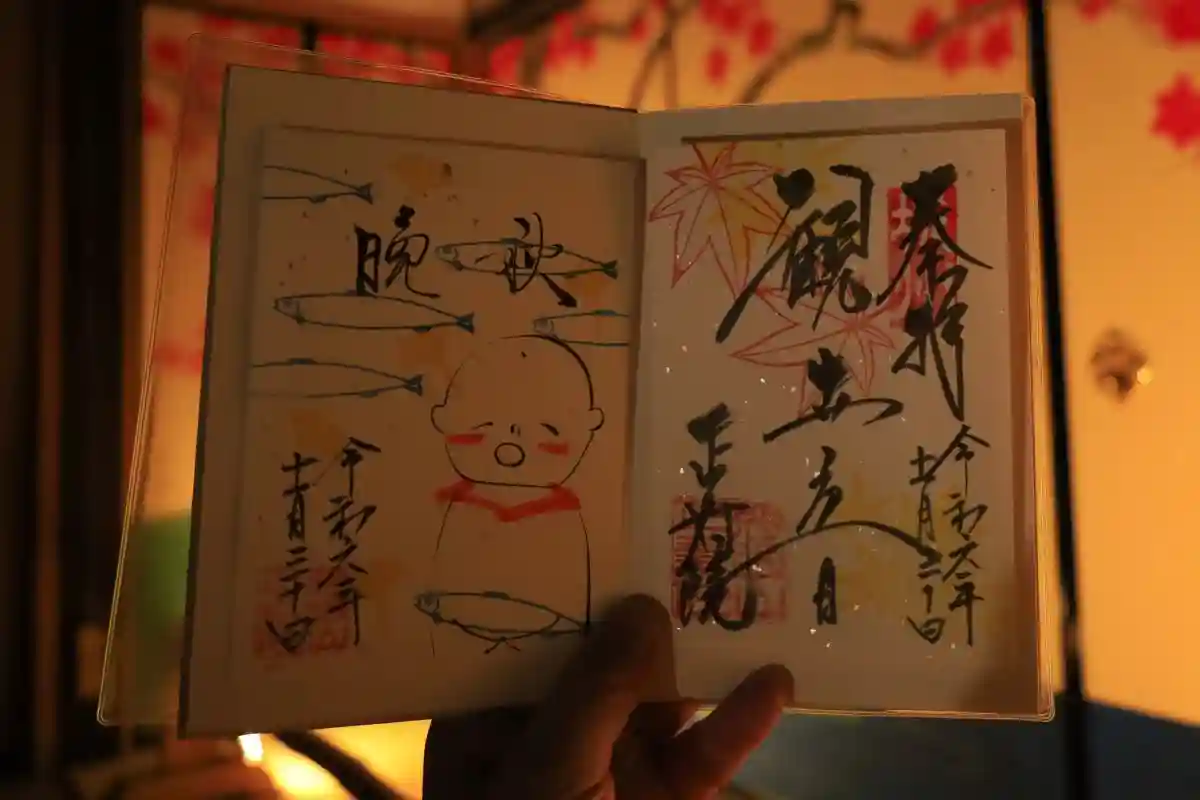 奉拝
令和六年
十一月三十日
観世音
正寿院
晩秋
令和六年
十一月三十日